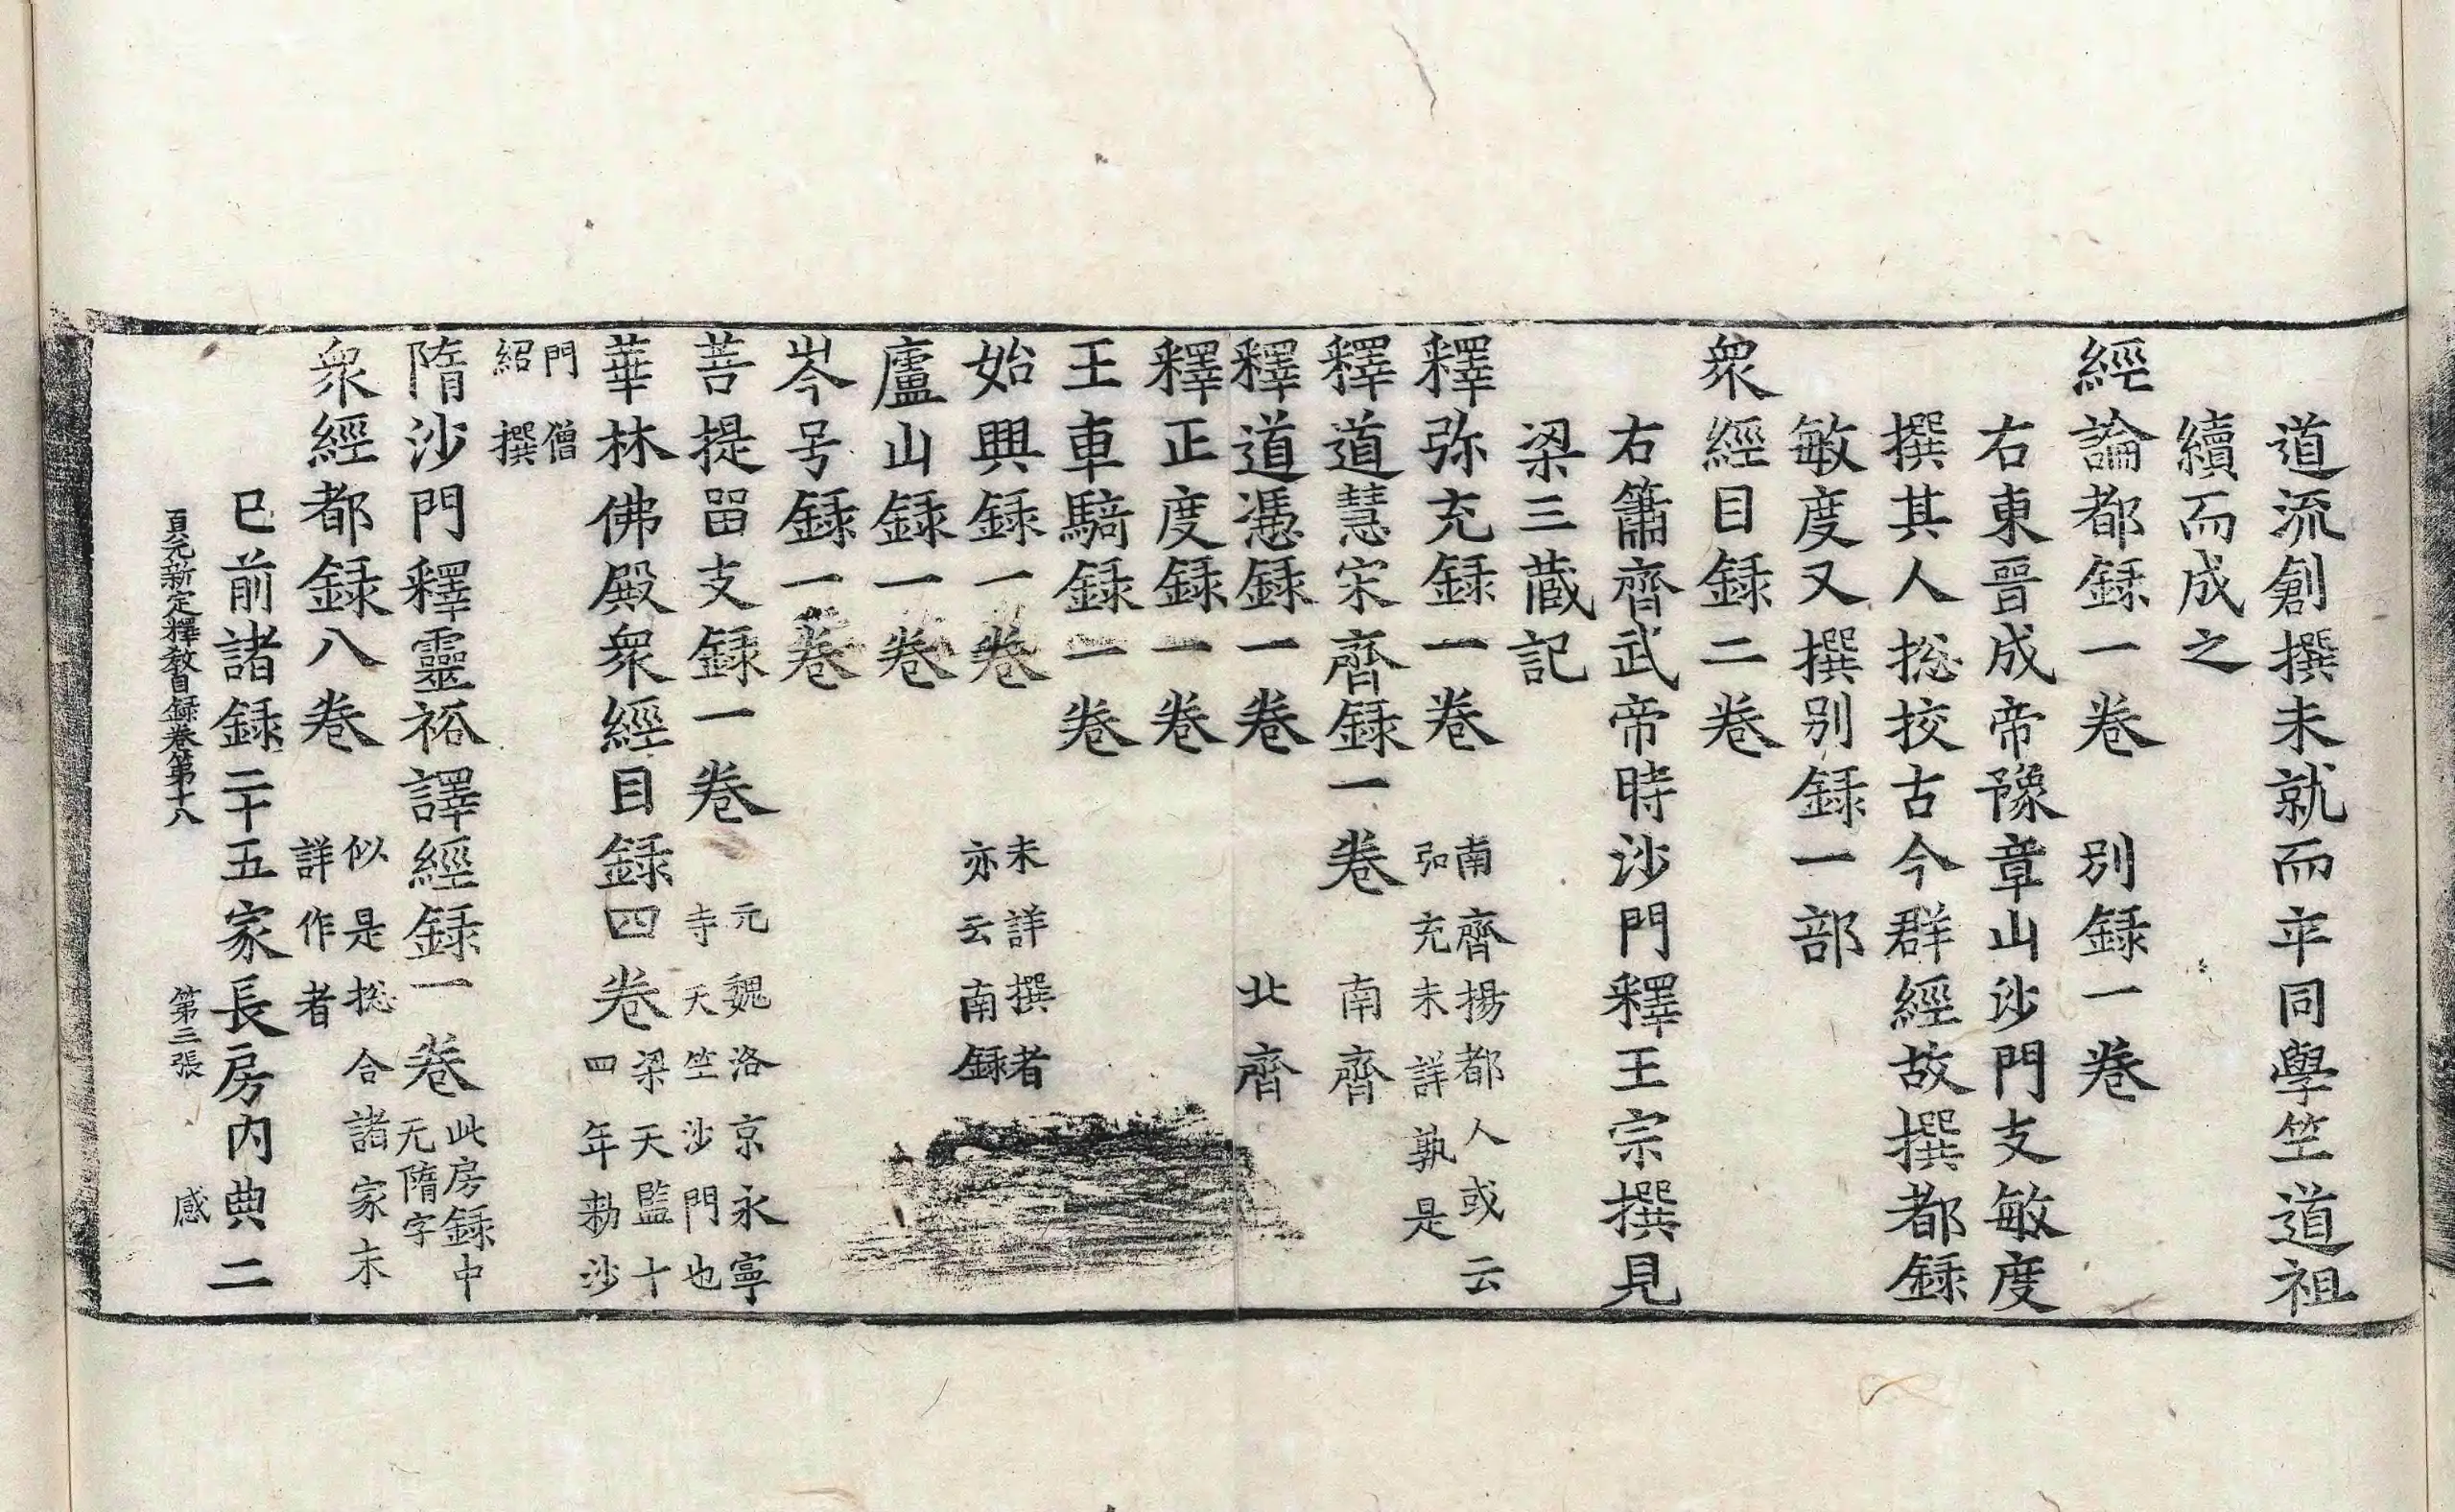 道流創撰未就而卒同學竺道祖
續而成之
經論都録一卷　別録一卷
右東晉成帝豫章山沙門支敏度
撰其人揔挍古今群經故撰都録
敏度又撰別録一部
衆經目録二卷
右簫齊武帝時沙門釋王宗撰見
梁三藏記
釋弥充録一卷南齊揚都人或云弘充未詳孰是
釋道慧宋齊録一卷　南齊
釋道憑録一卷　北齊
釋正度録一卷
王車騎録一卷
始興録一卷　未詳撰者亦云南録
廬山録一卷
岑号録一卷
菩提留支録一卷元魏洛京永寧寺天竺沙門也
華林佛殿衆經目録四卷梁天監十四年勑沙
門僧紹撰
隋沙門釋靈裕譯經録一卷此房録中无隋字
衆經都録八卷似是揔合諸家未詳作者
已前諸録二十五家長房内典二
貞元新定釋教目録卷第十八　第三張　感